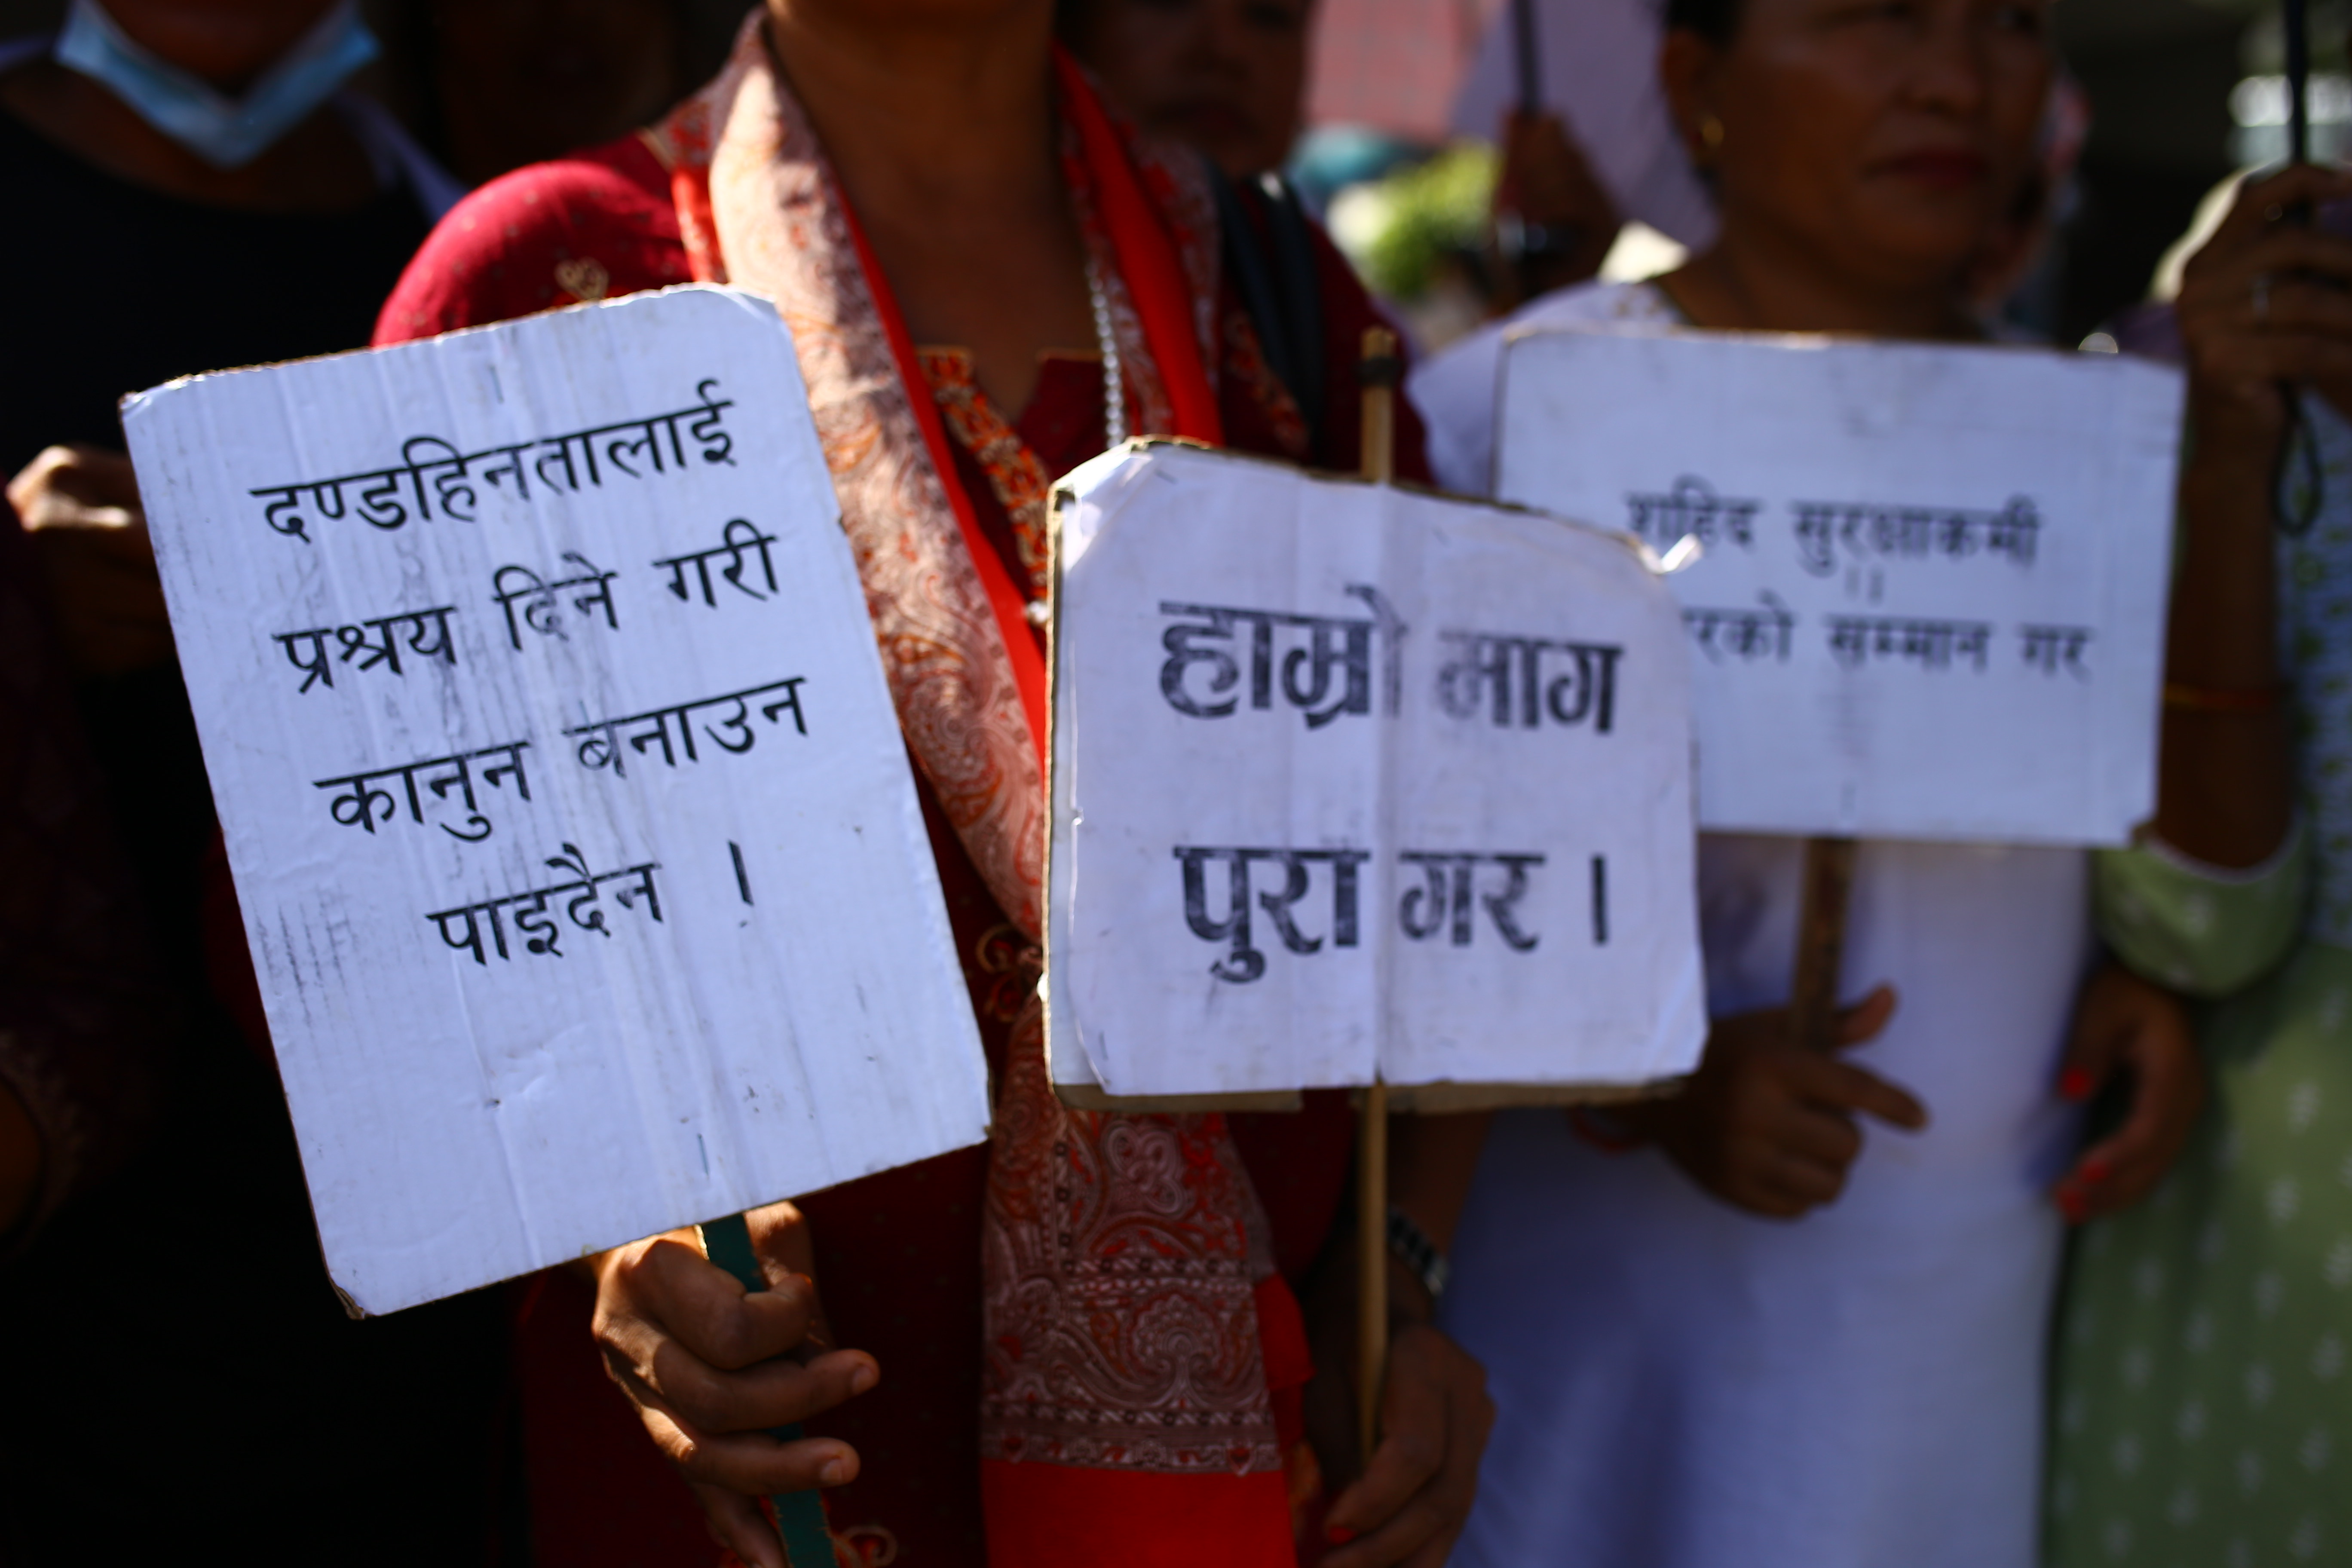 दण्डहिनतालाई
प्रश्रय दिने गरी
कानुन बनाउन
पाइदैन ।
हाम्रो माग
पुरा गर ।
शहिद सुरक्षाकर्मी
सम्मान गर